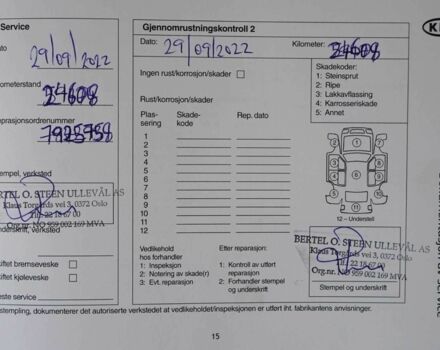 Service
ato
29/09/2022
ometerstand
24608
eprasjonsordrenummer
7928758
tempel, verksted
ERTEL O. STEEN ULLEVÅL AS
Klaus Torgårds vei 3, 0372 Oslo
Tlf. 22 18 67 00
Org.nr. NO 959 002 169 MVA
nderskrift, verksted
kiftet bremsevæske
kiftet kjølevæske
este service
Gjennomrustningskontroll 2
Dato: 29/09/2022 Kilometer: 24608
Ingen rust/korrosjon/skader
Rust/korrosjon/skader
Plas-sering Skade-kode Rep. dato
1
2
3
4
5
6
7
8
9
10
11
12
Skadekoder:
1: Steinsprut
2: Ripe
3: Lakkavflassing
4: Karrosseriskade
5: Annet
12 – Understell
Vedlikehold hos forhandler
1: Inspeksjon
2: Notering av skade(r)
3: Evt. reparasjon
Etter reparasjon:
1: Kontroll av utført reparasjon
2: Forhandler stempel og underskrift
BERTEL O. STEEN ULLEVÅL AS
Klaus Torgårds vei 3, 0372 Oslo
Tlf. 22 18 67 00
Org.nr. NO 959 002 169 MVA
Stempel og underskrift
stempling, dokumenterer det autoriserte verkstedet at vedlikeholdet/inspeksjonen er utført iht. fabrikantens anvisninger.
15